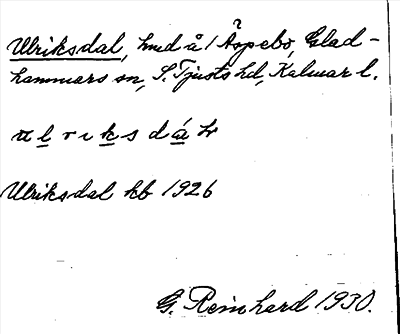 Ulriksdal, hmd å 1 Äspebo, Glad-
hammars sn, S. Tjusts hd, Kalmar l.
Ulriksdal kb 1926
G. Reinhard 1930.